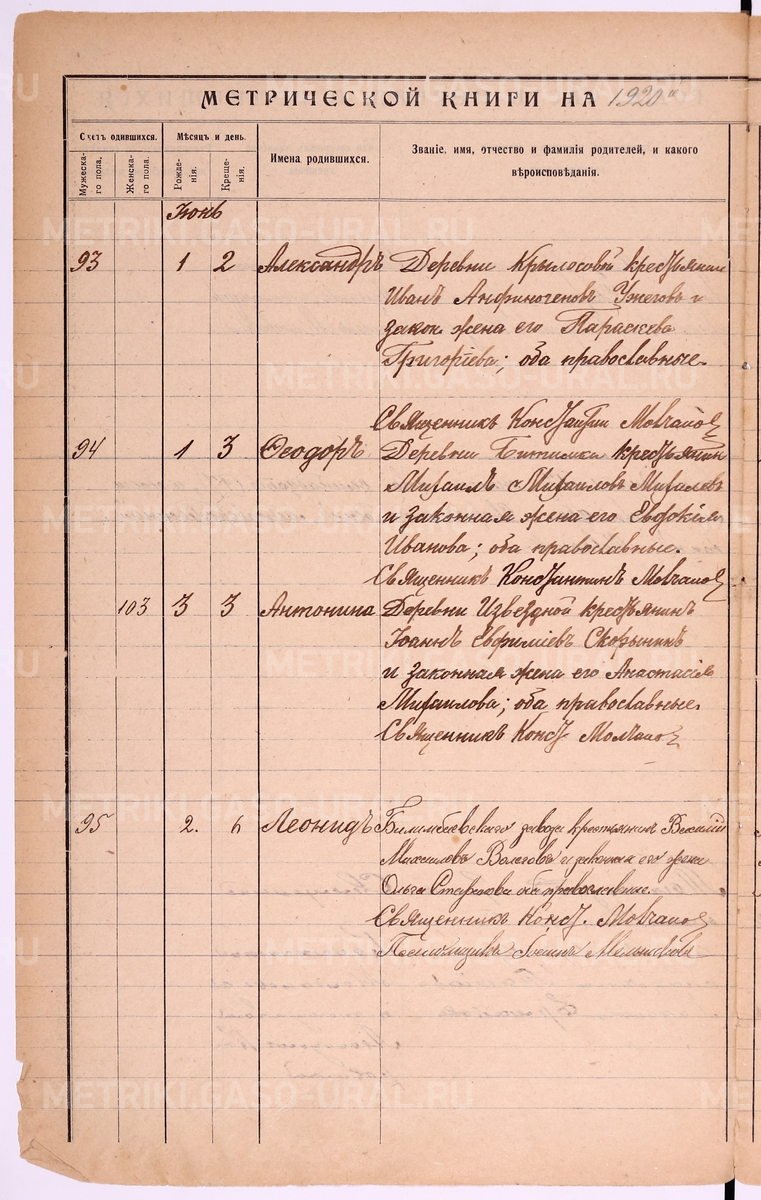 МЕТРИЧЕСКОЙ КНИГИ НА 1920
Счетъ одившихся.
Мѣсяцъ и день.
Имена родившихся.
Званіе, имя, отчество и фамилія родителей, и какого
вѣроисповѣданія.
Мужеска-
го пола.
Женска-
го пола.
Рожде-
нія.
Креще-
нія.
Іюнь
93 1 2 Александръ Деревни Крылосовой крестьянин
Иванъ Анфиногеновъ Ужеговъ и
закон. жена его Параскева
Григоріева; оба православные.
Священникъ Константин Мовчанов
94 1 3 Ѳеодоръ Деревни Битимки крестьянин
Михаилъ Михаиловъ Михалевъ
и законная жена его Евдокія
Иванова; оба православные.
Священникъ Константинъ Мовчанов
103 3 3 Антонина Деревни Извездной крестьянинъ
Іоаннъ Евфиміевъ Скорынинъ
и законная жена его Анастасія
Михаилова; оба православные.
Священникъ Конст. Молчанов
95 2. 6 Леонидъ Билимбаевскаго завода крестьянинъ Василій
Михаиловъ и законная его жена
Ольга оба православные.
Священникъ Конст. Мовчанов
Псаломщикъ
METRIKI.GASO-URAL.RU